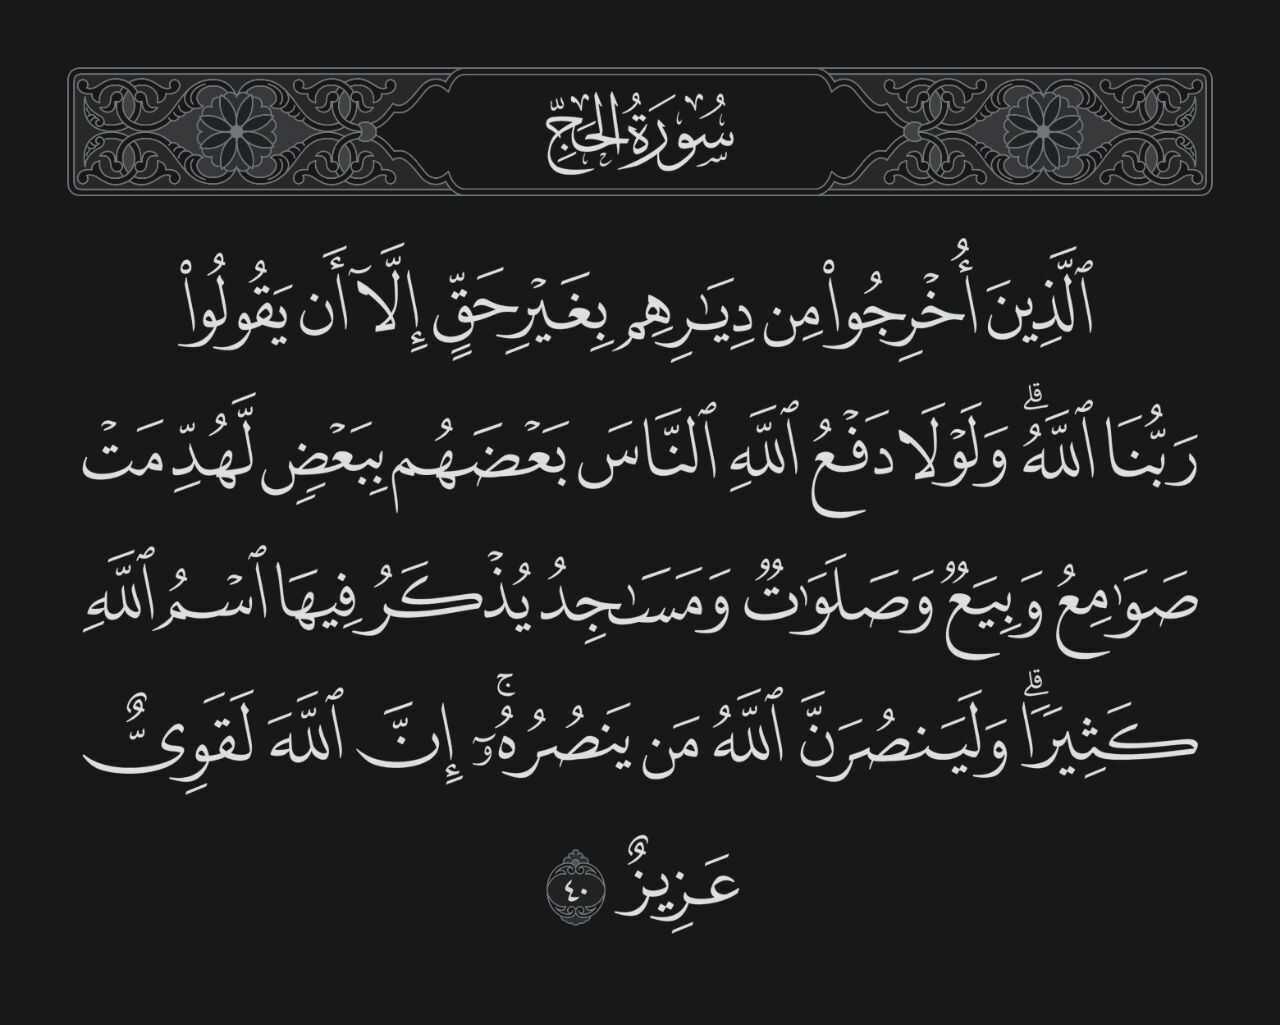 سُورَةُ الحَجِّ
ٱلَّذِينَ أُخۡرِجُواْ مِن دِيَٰرِهِم بِغَيۡرِ حَقٍّ إِلَّآ أَن يَقُولُواْ
رَبُّنَا ٱللَّهُۗ وَلَوۡلَا دَفۡعُ ٱللَّهِ ٱلنَّاسَ بَعۡضَهُم بِبَعۡضٖ لَّهُدِّمَتۡ
صَوَٰمِعُ وَبِيَعٞ وَصَلَوَٰتٞ وَمَسَٰجِدُ يُذۡكَرُ فِيهَا ٱسۡمُ ٱللَّهِ
كَثِيرٗاۗ وَلَيَنصُرَنَّ ٱللَّهُ مَن يَنصُرُهُۥٓۚ إِنَّ ٱللَّهَ لَقَوِيٌّ
عَزِيزٌ ٤٠